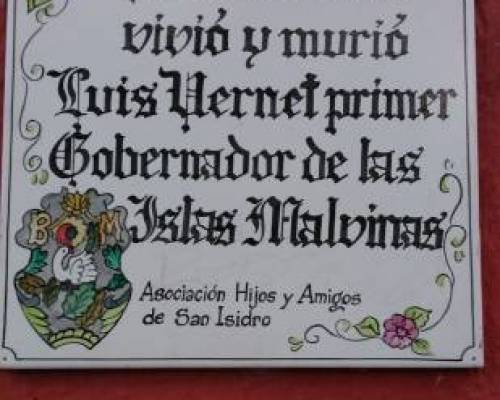 vivió y murió
Luis Vernet primer
Gobernador de las
Islas Malvinas
B M
Asociación Hijos y Amigos
de San Isidro